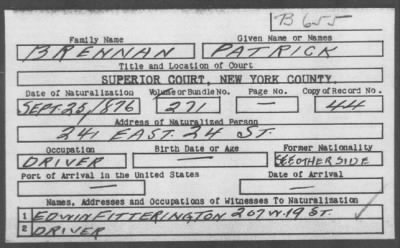 B 655
Family Name Given Name or Names
BRENNAN PATRICK
Title and Location of Court
SUPERIOR COURT, NEW YORK COUNTY.
Date of Naturalization Volume or Bundle No. Page No. Copy of Record No.
SEPT. 25/1876 271 — 44
Address of Naturalized Person
241 EAST. 24 ST.
Occupation Birth Date or Age Former Nationality
DRIVER — SEE OTHER SIDE
Port of Arrival in the United States Date of Arrival
— —
Names, Addresses and Occupations of Witnesses To Naturalization
1 EDWIN FITTERINGTON 207 W. 19 ST.
2 DRIVER